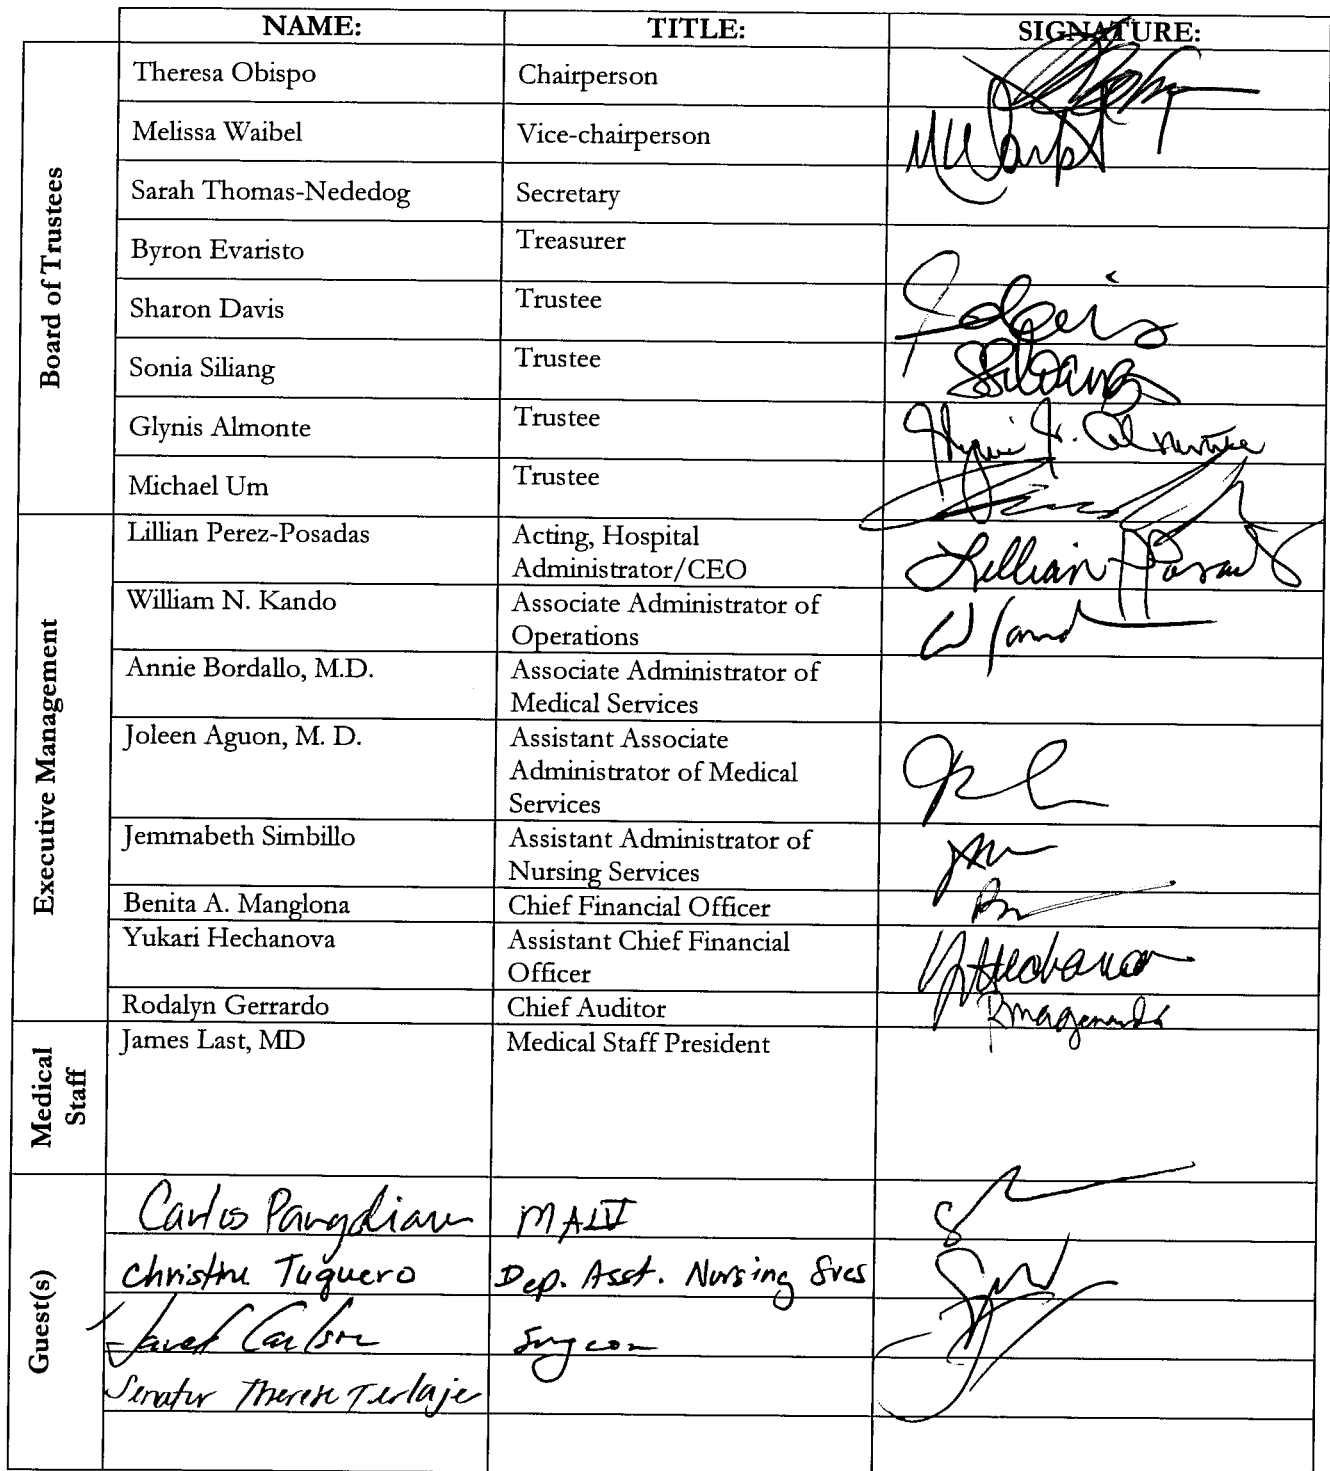 NAME: TITLE: SIGNATURE:
Board of Trustees
Theresa Obispo Chairperson
Melissa Waibel Vice-chairperson
Sarah Thomas-Nededog Secretary
Byron Evaristo Treasurer
Sharon Davis Trustee
Sonia Siliang Trustee
Glynis Almonte Trustee
Michael Um Trustee
Executive Management
Lillian Perez-Posadas Acting, Hospital
Administrator/CEO
William N. Kando Associate Administrator of
Operations
Annie Bordallo, M.D. Associate Administrator of
Medical Services
Joleen Aguon, M. D. Assistant Associate
Administrator of Medical
Services
Jemmabeth Simbillo Assistant Administrator of
Nursing Services
Benita A. Manglona Chief Financial Officer
Yukari Hechanova Assistant Chief Financial
Officer
Rodalyn Gerrardo Chief Auditor
Medical
Staff
James Last, MD Medical Staff President
Guest(s)
Carlos Pangelinan
Christine Tuquero Dep. Asst. Nursing Svcs
Jared Carlson Surgeon
Senator Therese Terlaje